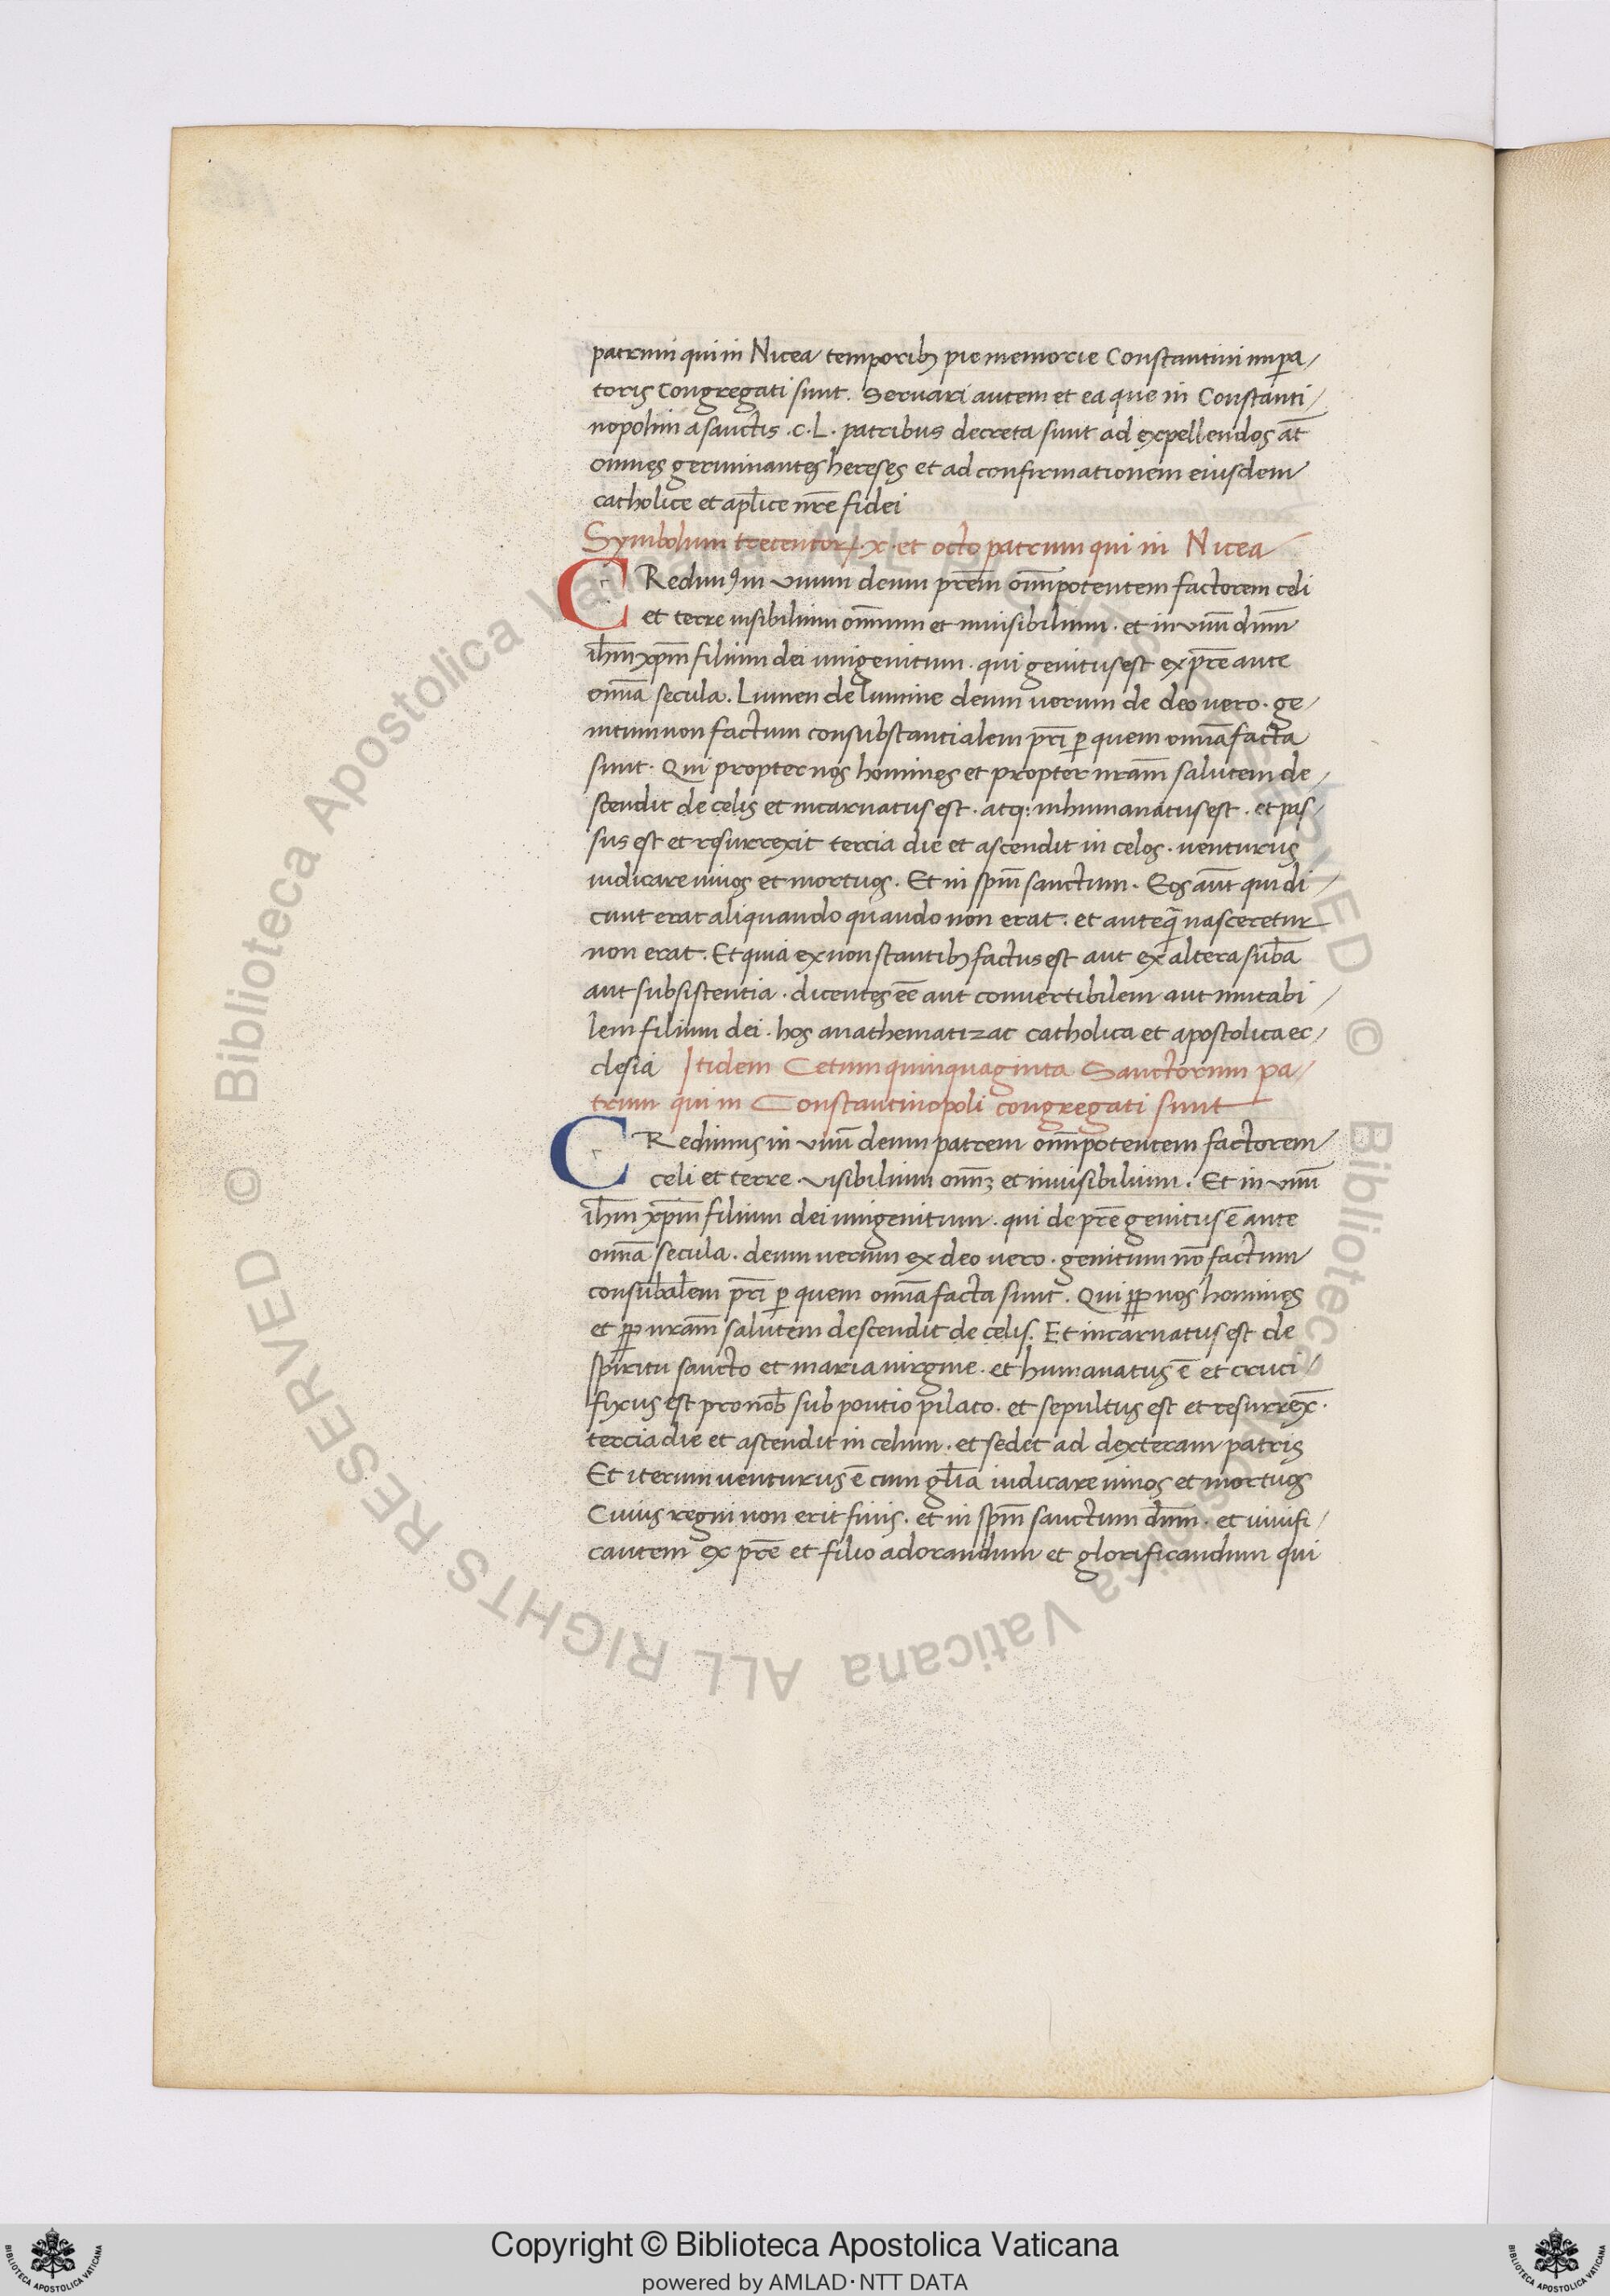 patrum qui in Nicea temporibꝫ pie memorie Constantini imꝑa/
toris Congregati sunt. Seruari autem et ea que in Constanti/
nopolim a sanctis .c.L. patribus decreta sunt ad expellendos āt
omnes germinantes hereses et ad confirmationem eiusdem
catholice et apl̄ice nr̄e fidei
Symbolum trecentorꝝ .x. et octo patrum qui in Nicea
CRedimꝰ in vnum deum pr̄em om̄ipotentem factorem celi
et terre uisibilium om̄ium et inuisibilium. et in vnū dn̄m
ih̄m xp̄m filium dei unigenitum. qui genitus est ex pr̄e ante
omīa secula. Lumen de lumine deum uerum de deo uero. ge/
nitum non factum consubstantialem pr̄i ꝑ quem omīa facta
sunt. Qui propter nos homines et propter nr̄am salutem de/
scendit de celis et incarnatus est. atq: inhumanatus est. et pas/
sus est et resurrexit tercia die et ascendit in celos. uenturus
iudicare uiuos et mortuos. Et in sp̄m sanctum. Eos aūt qui di/
cunt erat aliquando quando non erat. et anteq̄ nasceretur
non erat. Et quia ex non stantibꝫ factus est aut ex altera sub̄a
aut subsistentia. dicentes eē aut conuertibilem aut mutabi/
lem filium dei. hos anathematizat catholica et apostolica ec/
clesia Itidem Cetum quinquaginta Sanctorum pa/
trum qui in Constantinopoli congregati sunt
CRedimus in vnū deum patrem om̄ipotentem factorem
celi et terre. visibilium om̄ꝫ et inuisibilium. Et in vnū
ih̄m xp̄m filium dei unigenitum. qui de pr̄e genitus ē ante
omīa secula. deum uerum ex deo uero. genitum nō factum
consub̄alem pr̄i ꝑ quem omīa facta sunt. Qui ꝓp nos homines
et ꝓp nr̄am salutem descendit de celis. Et incarnatus est de
spiritu sancto et maria uirgine. et humanatus ē et cruci/
fixus est pro nob̄ sub pontio pilato. et sepultus est et resurrex̄.
tercia die et ascendit in celum. et sedet ad dexteram patris
Et iterum uenturus ē cum gl̄ia iudicare uiuos et mortuos
Cuius regni non erit finis. et in sp̄m sanctum dn̄m. et uiuifi/
cantem ex pr̄e et filio adorandum et glorificandum qui
Biblioteca Apostolica Vaticana ALL RIGHTS RESERVED ©
Biblioteca Apostolica Vaticana ALL RIGHTS RESERVED ©
Copyright © Biblioteca Apostolica Vaticana
powered by AMLAD·NTT DATA
BIBLIOTECA APOSTOLICA VATICANA
BIBLIOTECA APOSTOLICA VATICANA